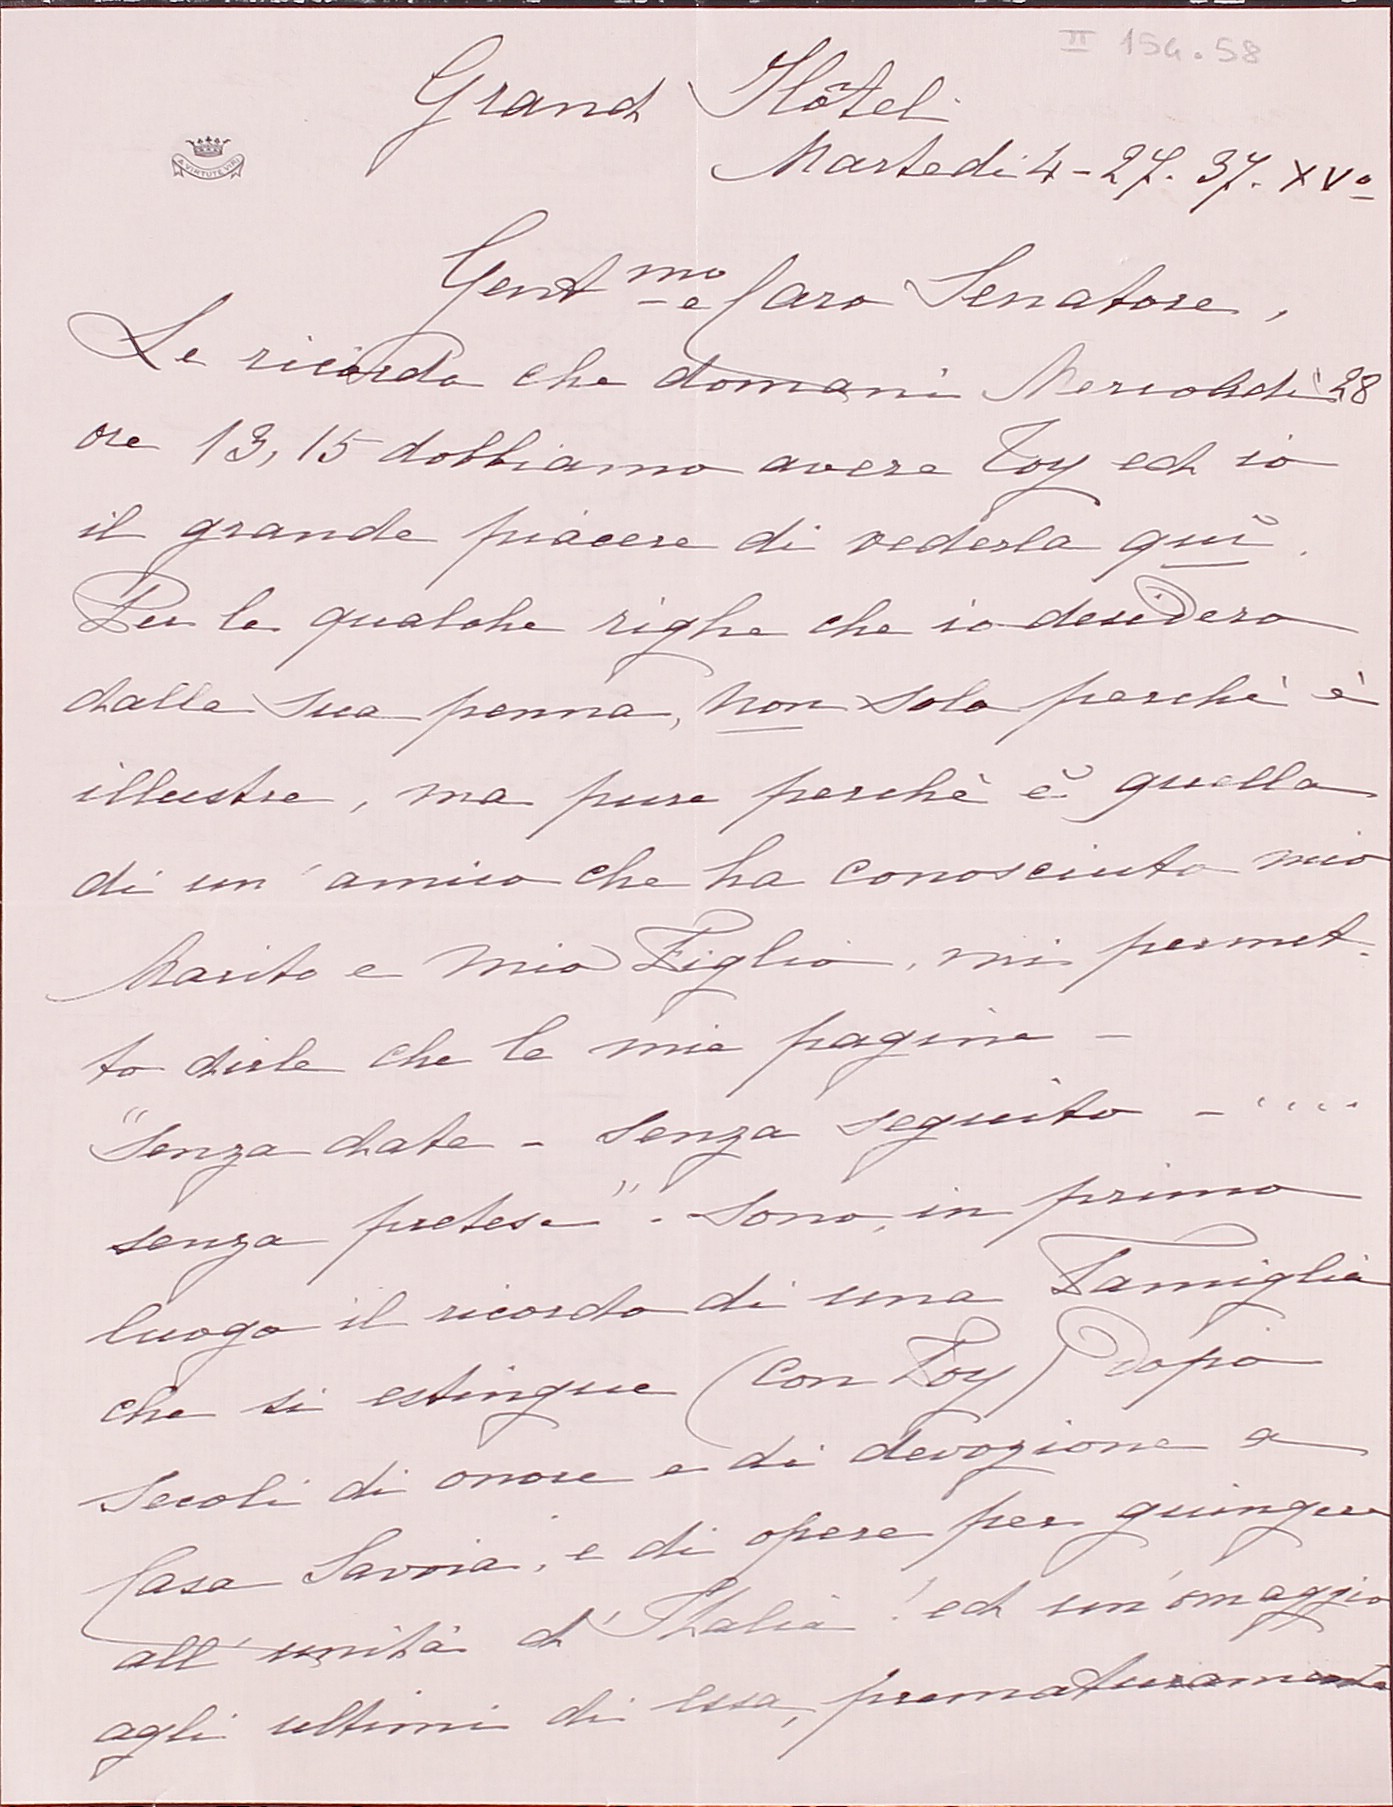 II 154.58
Grand Hôtel
A VIRTUTE VIRI
Martedi 4-27.37. XVº
Gent mo e Caro Senatore,
Le ricordo che domani Mercoledì 28
ore 13,15 dobbiamo avere Toy ed io
il grande piacere di vederla quì.
Per le qualche righe che io desidero
dalla sua penna, non solo perchè è
illustre, ma pure perchè è quella
di un' amico che ha conosciuto mio
Marito e mio Figlio, mi permet-
to dirle che le mie pagine -
"Senza date - Senza seguito - ....
senza pretese". Sono, in primo
luogo il ricordo di una Famiglia
che si estingue (con Toy) dopo
secoli di onore e di devozione a
Casa Savoia, e di opere per guingere
all' unità d' Italia! ed un' omaggio
agli ultimi di essa, prematuramente